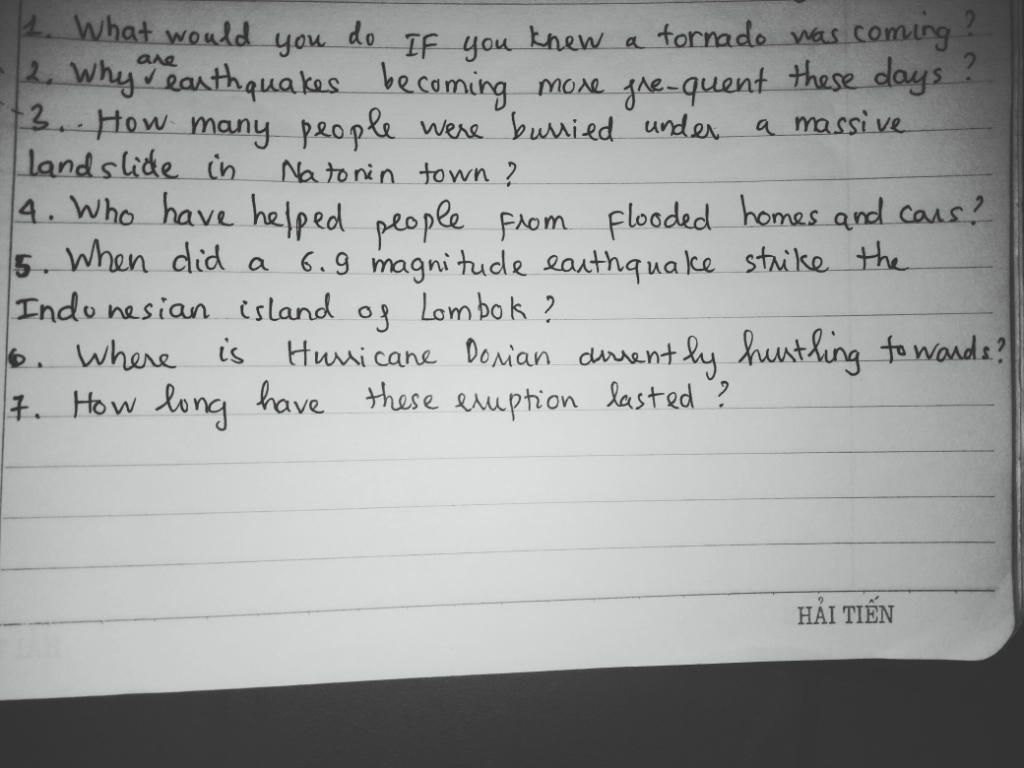 1. What would you do IF you knew a tornado was coming?
are
2. Why ✓ earthquakes becoming more fre-quent these days?
3. How many people were burried under a massive
landslide in Natonin town?
4. Who have helped people from flooded homes and cars?
5. When did a 6.9 magnitude earthquake strike the
Indonesian island of Lombok?
6. Where is Hurricane Dorian currently hurtling towards?
7. How long have these eruption lasted?
HẢI TIẾN